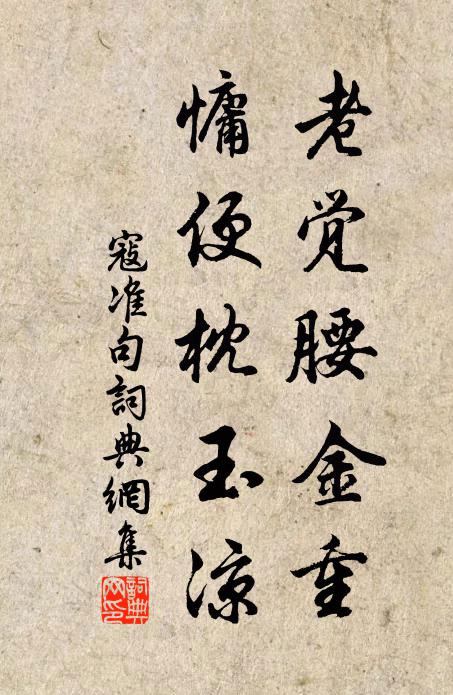 老觉腰金重
慵便枕玉凉
寇准句詞典網集
詞典
网印